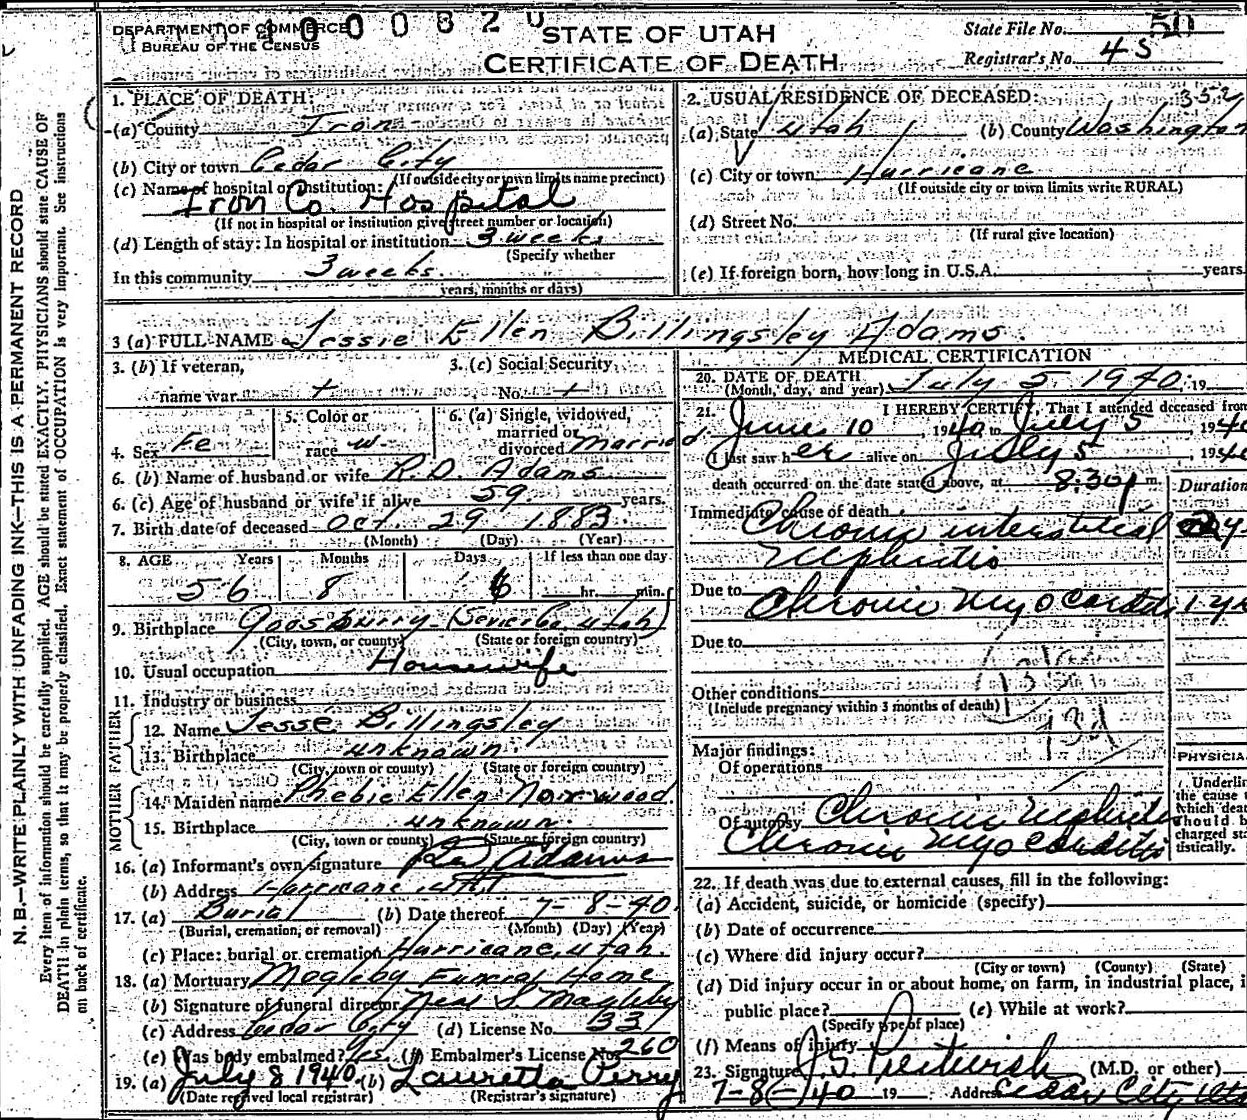 DEPARTMENT OF COMMERCE
BUREAU OF THE CENSUS
1 0 0 0 8 2 0
STATE OF UTAH
CERTIFICATE OF DEATH
State File No. 50
Registrar's No. 45
N. B.—WRITE PLAINLY WITH UNFADING INK—THIS IS A PERMANENT RECORD
Every item of information should be carefully supplied. AGE should be stated EXACTLY. PHYSICIANS should state CAUSE OF
DEATH in plain terms, so that it may be properly classified. Exact statement of OCCUPATION is very important. See instructions
on back of certificate.
1. PLACE OF DEATH:
(a) County Iron
(b) City or town Cedar City
(If outside city or town limits name precinct)
(c) Name of hospital or institution:
Iron Co. Hospital
(If not in hospital or institution give street number or location)
(d) Length of stay: In hospital or institution 3 weeks
(Specify whether
In this community 3 weeks
years, months or days)
2. USUAL RESIDENCE OF DECEASED: 352
(a) State Utah (b) County Washington
(c) City or town Hurricane
(If outside city or town limits write RURAL)
(d) Street No.
(If rural give location)
(e) If foreign born, how long in U.S.A. years
3 (a) FULL NAME Jessie Ellen Billingsley Adams
3. (b) If veteran,
name war
3. (c) Social Security
No.
4. Sex Fe
5. Color or
race w
6. (a) Single, widowed,
married or
divorced Married
6. (b) Name of husband or wife R.D. Adams
6. (c) Age of husband or wife if alive 59 years.
7. Birth date of deceased Oct. 29 1883
(Month) (Day) (Year)
8. AGE Years Months Days If less than one day
56 8 6 hr. min.
9. Birthplace (Sevier Co, Utah)
(City, town, or county) (State or foreign country)
10. Usual occupation Housewife
11. Industry or business
FATHER
12. Name Jesse Billingsley
13. Birthplace unknown
(City, town or county) (State or foreign country)
MOTHER
14. Maiden name Phebie Ellen Norwood
15. Birthplace unknown
(City, town or county) (State or foreign country)
16. (a) Informant's own signature Adams
(b) Address Hurricane, Utah
17. (a) Burial (b) Date thereof 7-8-40
(Burial, cremation, or removal) (Month) (Day) (Year)
(c) Place: burial or cremation Hurricane, Utah.
18. (a) Mortuary Magleby Funeral Home
(b) Signature of funeral director Neal S Magleby
(c) Address Cedar City (d) License No. 337
(e) Was body embalmed? Yes. (f) Embalmer's License No. 260
19. (a) July 8 1940 (b) Lauretta Perry
(Date received local registrar) (Registrar's signature)
MEDICAL CERTIFICATION
20. DATE OF DEATH
(Month, day, and year) July 5 1940 19
21. I HEREBY CERTIFY, That I attended deceased from
June 10, 1940 to July 5 1940
I last saw her alive on July 5, 1940
death occurred on the date stated above, at 8:30 p m.
Duration
Immediate cause of death
Chronic interstitial
Nephritis
Due to Chronic Myocarditis 1 yr
Due to
Other conditions
(Include pregnancy within 3 months of death)
131
Major findings:
Of operations
Of autopsy Chronic Nephritis
Chronic Myocarditis
PHYSICIA
Underlin
the cause
which deat
should b
charged sta
tistically.
22. If death was due to external causes, fill in the following:
(a) Accident, suicide, or homicide (specify)
(b) Date of occurrence
(c) Where did injury occur?
(City or town) (County) (State)
(d) Did injury occur in or about home, on farm, in industrial place, i
public place? (e) While at work?
(Specify type of place)
(f) Means of injury
23. Signature J. S. Prestwich (M.D. or other)
7-8-40 19 Address Cedar City, Uta